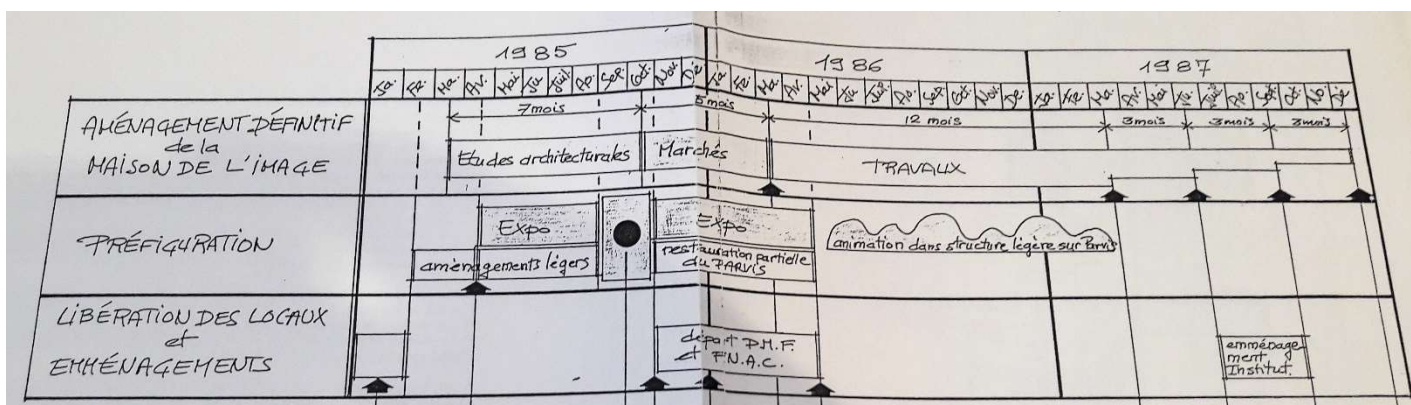 1985
1986
1987
Ja. Fe. Ma. Av. Mai Ju Juil. Ao. Sep. Oct. Nov. De Ja Fe. Ma. Av. Mai Ju Juil Ao. Sep Oct. Nov. De. Ja. Fe Ma. Av. Mai Ju. Juil Ao. Sept Oct. No. De
AMÉNAGEMENT DÉFINITIF
de la
MAISON DE L'IMAGE
7 mois
5 mois
12 mois
3 mois
3 mois
3 mois
Etudes architecturales
Marchés
TRAVAUX
PRÉFIGURATION
Expo
Expo
aménagements légers
restauration partielle
du PARVIS
animation dans structure légère sur Parvis
LIBÉRATION DES LOCAUX
et
EMMÉNAGEMENTS
départ P.M.F.
et F.N.A.C.
emménage
ment
Institut.